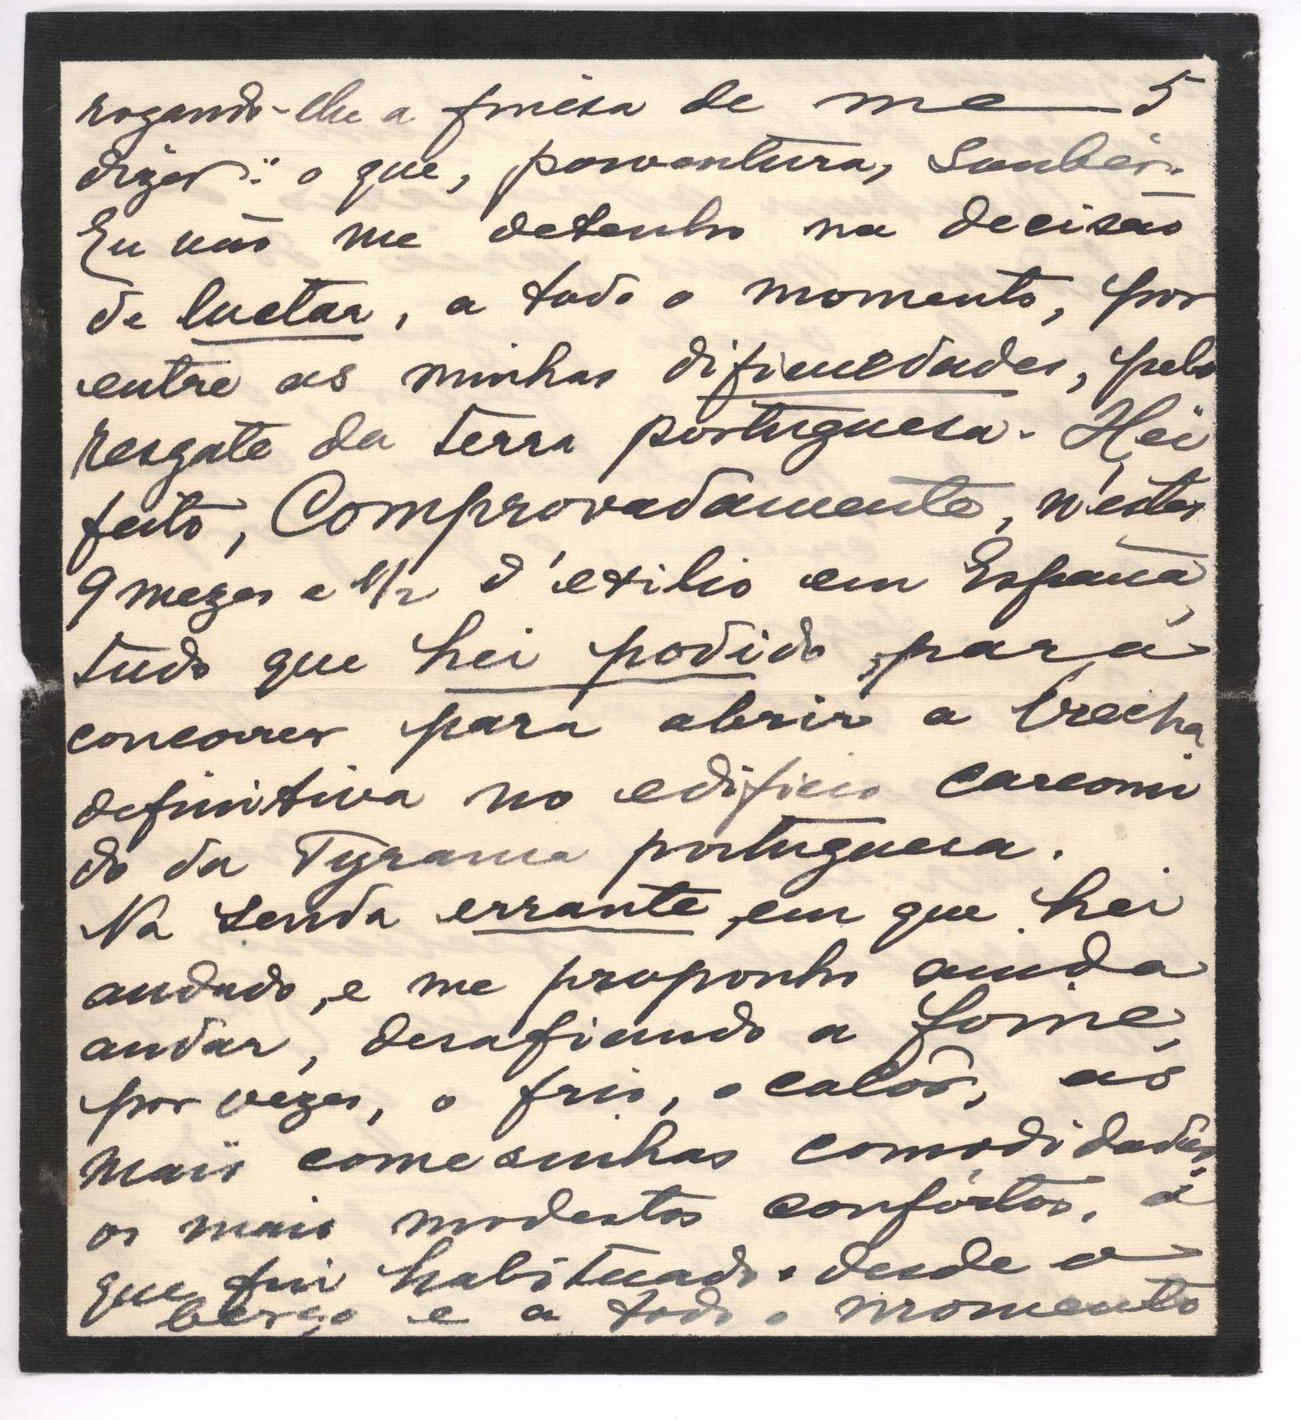 rogando-lhe a finêsa de me — 5
dizer: o que, porventura, Souber.
Eu não me detenho na decisão
de luctar, a todo o momento, por
entre as minhas dificuldades, pelo
resgate da terra portuguesa. Hei
feito, Comprovadamente, n'estes
9 mezes e 1/2 d'exilio em España,
tudo que hei podido, para
concorrer para abrir a brecha
definitiva no edificio carcomi
do da Tyrania portuguesa.
Na senda errante, em que hei
andado, e me proponho ainda
andar, desafiando a fome,
por vezes, o frio, o calôr, as
mais comesinhas comodidades,
os mais modestos confórtos, a
que fui habituado desde o
berço e a todo o momento